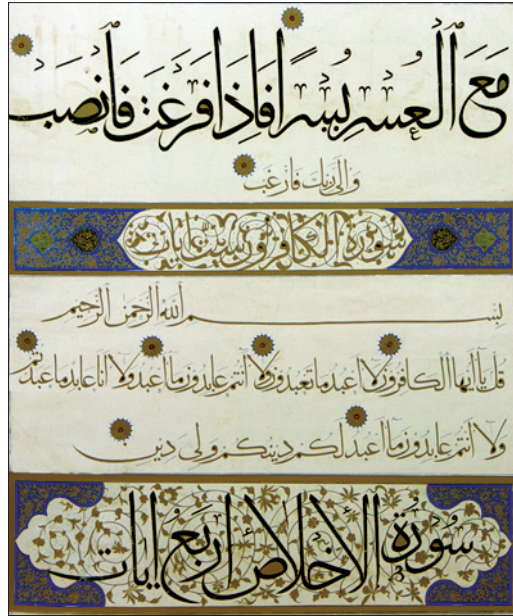 مَعَ الْعُسْرِ يُسْرًا فَاِذَا فَرَغْتَ فَانْصَبْ
وَاِلَى رَبِّكَ فَارْغَبْ
سورة الكافرون ست ايات
بسم الله الرحمن الرحيم
قل يا ايها الكافرون لا اعبد ما تعبدون ولا انتم عابدون ما اعبد ولا انا عابد ما عبدتم
ولا انتم عابدون ما اعبد لكم دينكم ولى دين
سُورَة الاخلاص اربع ايات